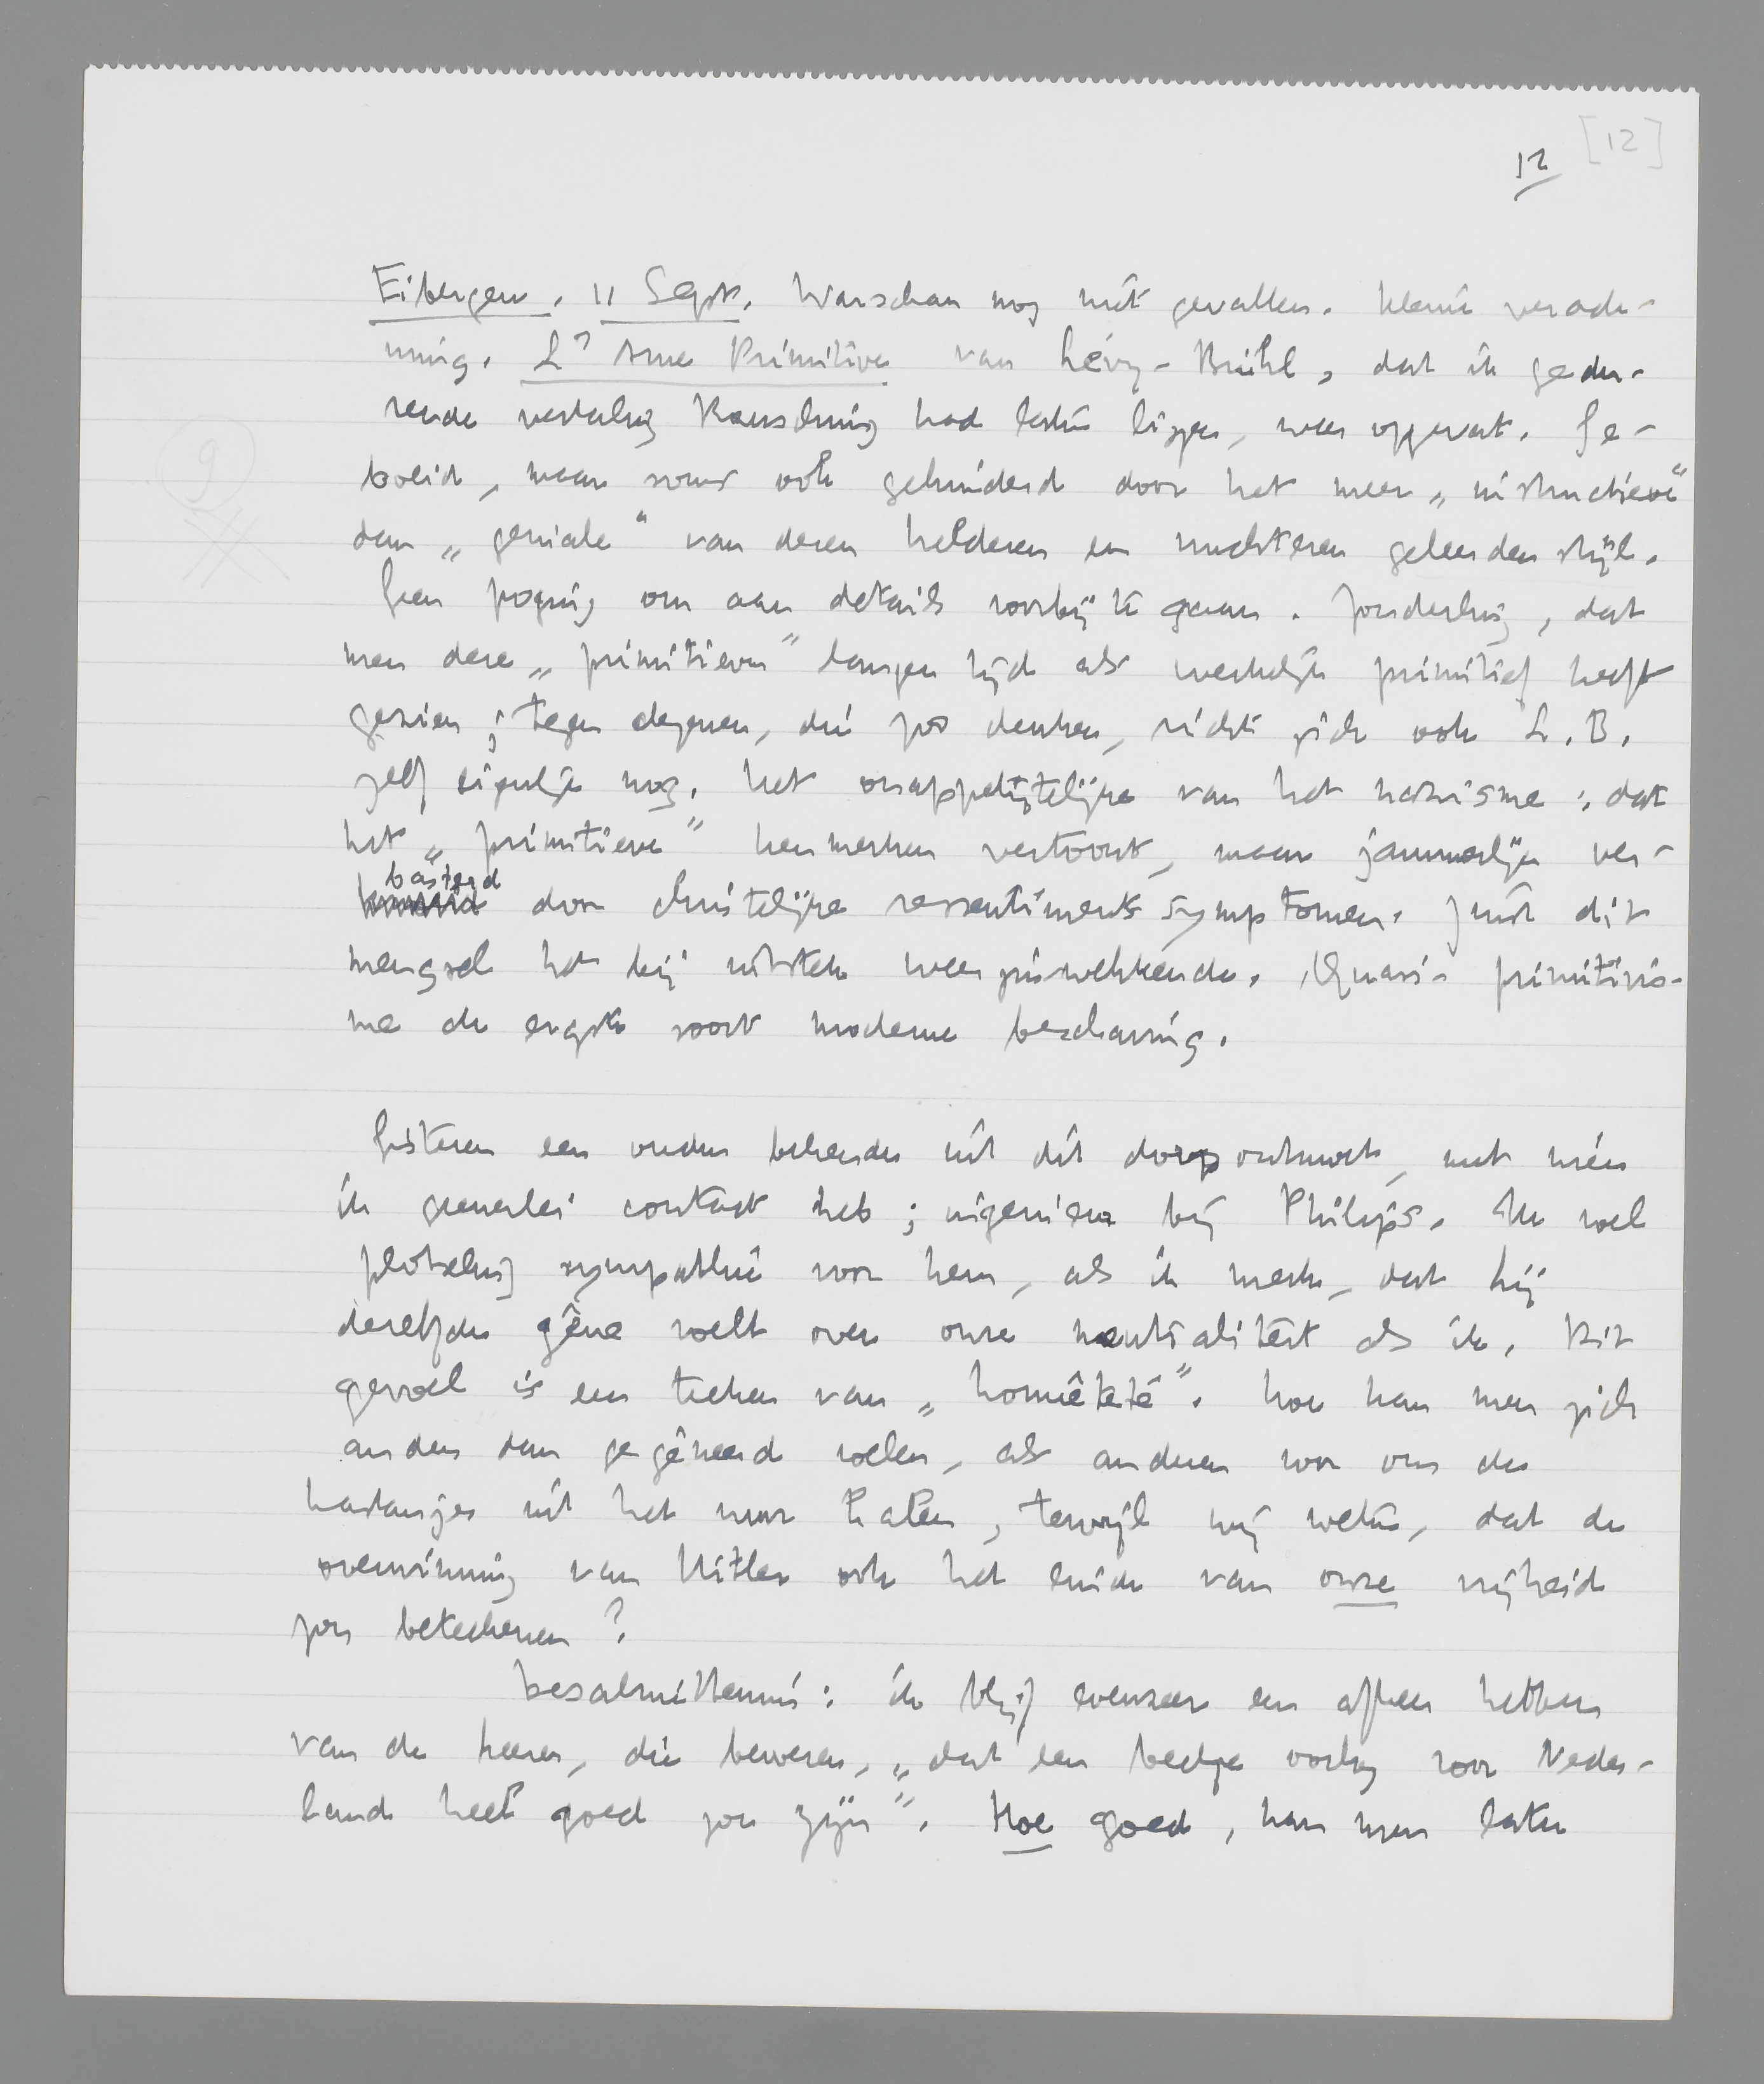 [12]
12
Eibergen, 11 Sept. Warschau nog niet gevallen. Kleine verade-
ming. L'Ame Primitive van Lévy-Brühl, dat ik gedu-
rende vertaling Rauschning had laten liggen, weer opgevat. Ge-
boeid, maar soms ook gehinderd door het meer „instructieve"
dan „geniale" van dezen helderen en nuchteren geleerden stijl.
Geen poging om aan details voorbij te gaan. Zonderling, dat
men deze „primitieven" langen tijd als werkelijk primitief heeft
gezien; tegen degenen, die zoo denken, richt zich ook L.B.
zelf eigenlijk nog. Het onappetijtelijke van het nazisme: dat
het „primitieve" kenmerken vertoont, maar jammerlijk ver-
basterd door christelijke ressentimentssymptomen. Juist dit
mengsel het bij uitstek weerzinwekkende. Quasi-primitivis-
me de ergste soort moderne beschaving.
Gisteren een ouden bekende uit dit dorp ontmoet, met wien
ik generlei contact heb; ingenieur bij Philips. Ik voel
plotseling sympathie voor hem, als ik merk, dat hij
dezelfde gêne voelt over onze neutraliteit als ik. Dit
gevoel is een teeken van „honnêteté". Hoe kan men zich
anders dan gegêneerd voelen, als anderen voor ons de
kastanjes uit het vuur halen, terwijl wij weten, dat de
overwinning van Hitler ook het einde van onze vrijheid
zou beteekenen?
Desalniettemin: ik blijf evenzeer een afkeer hebben
van de heeren, die beweren, „dat een beetje oorlog voor Neder-
land heel goed zou zijn". Hoe goed, kan men later
9